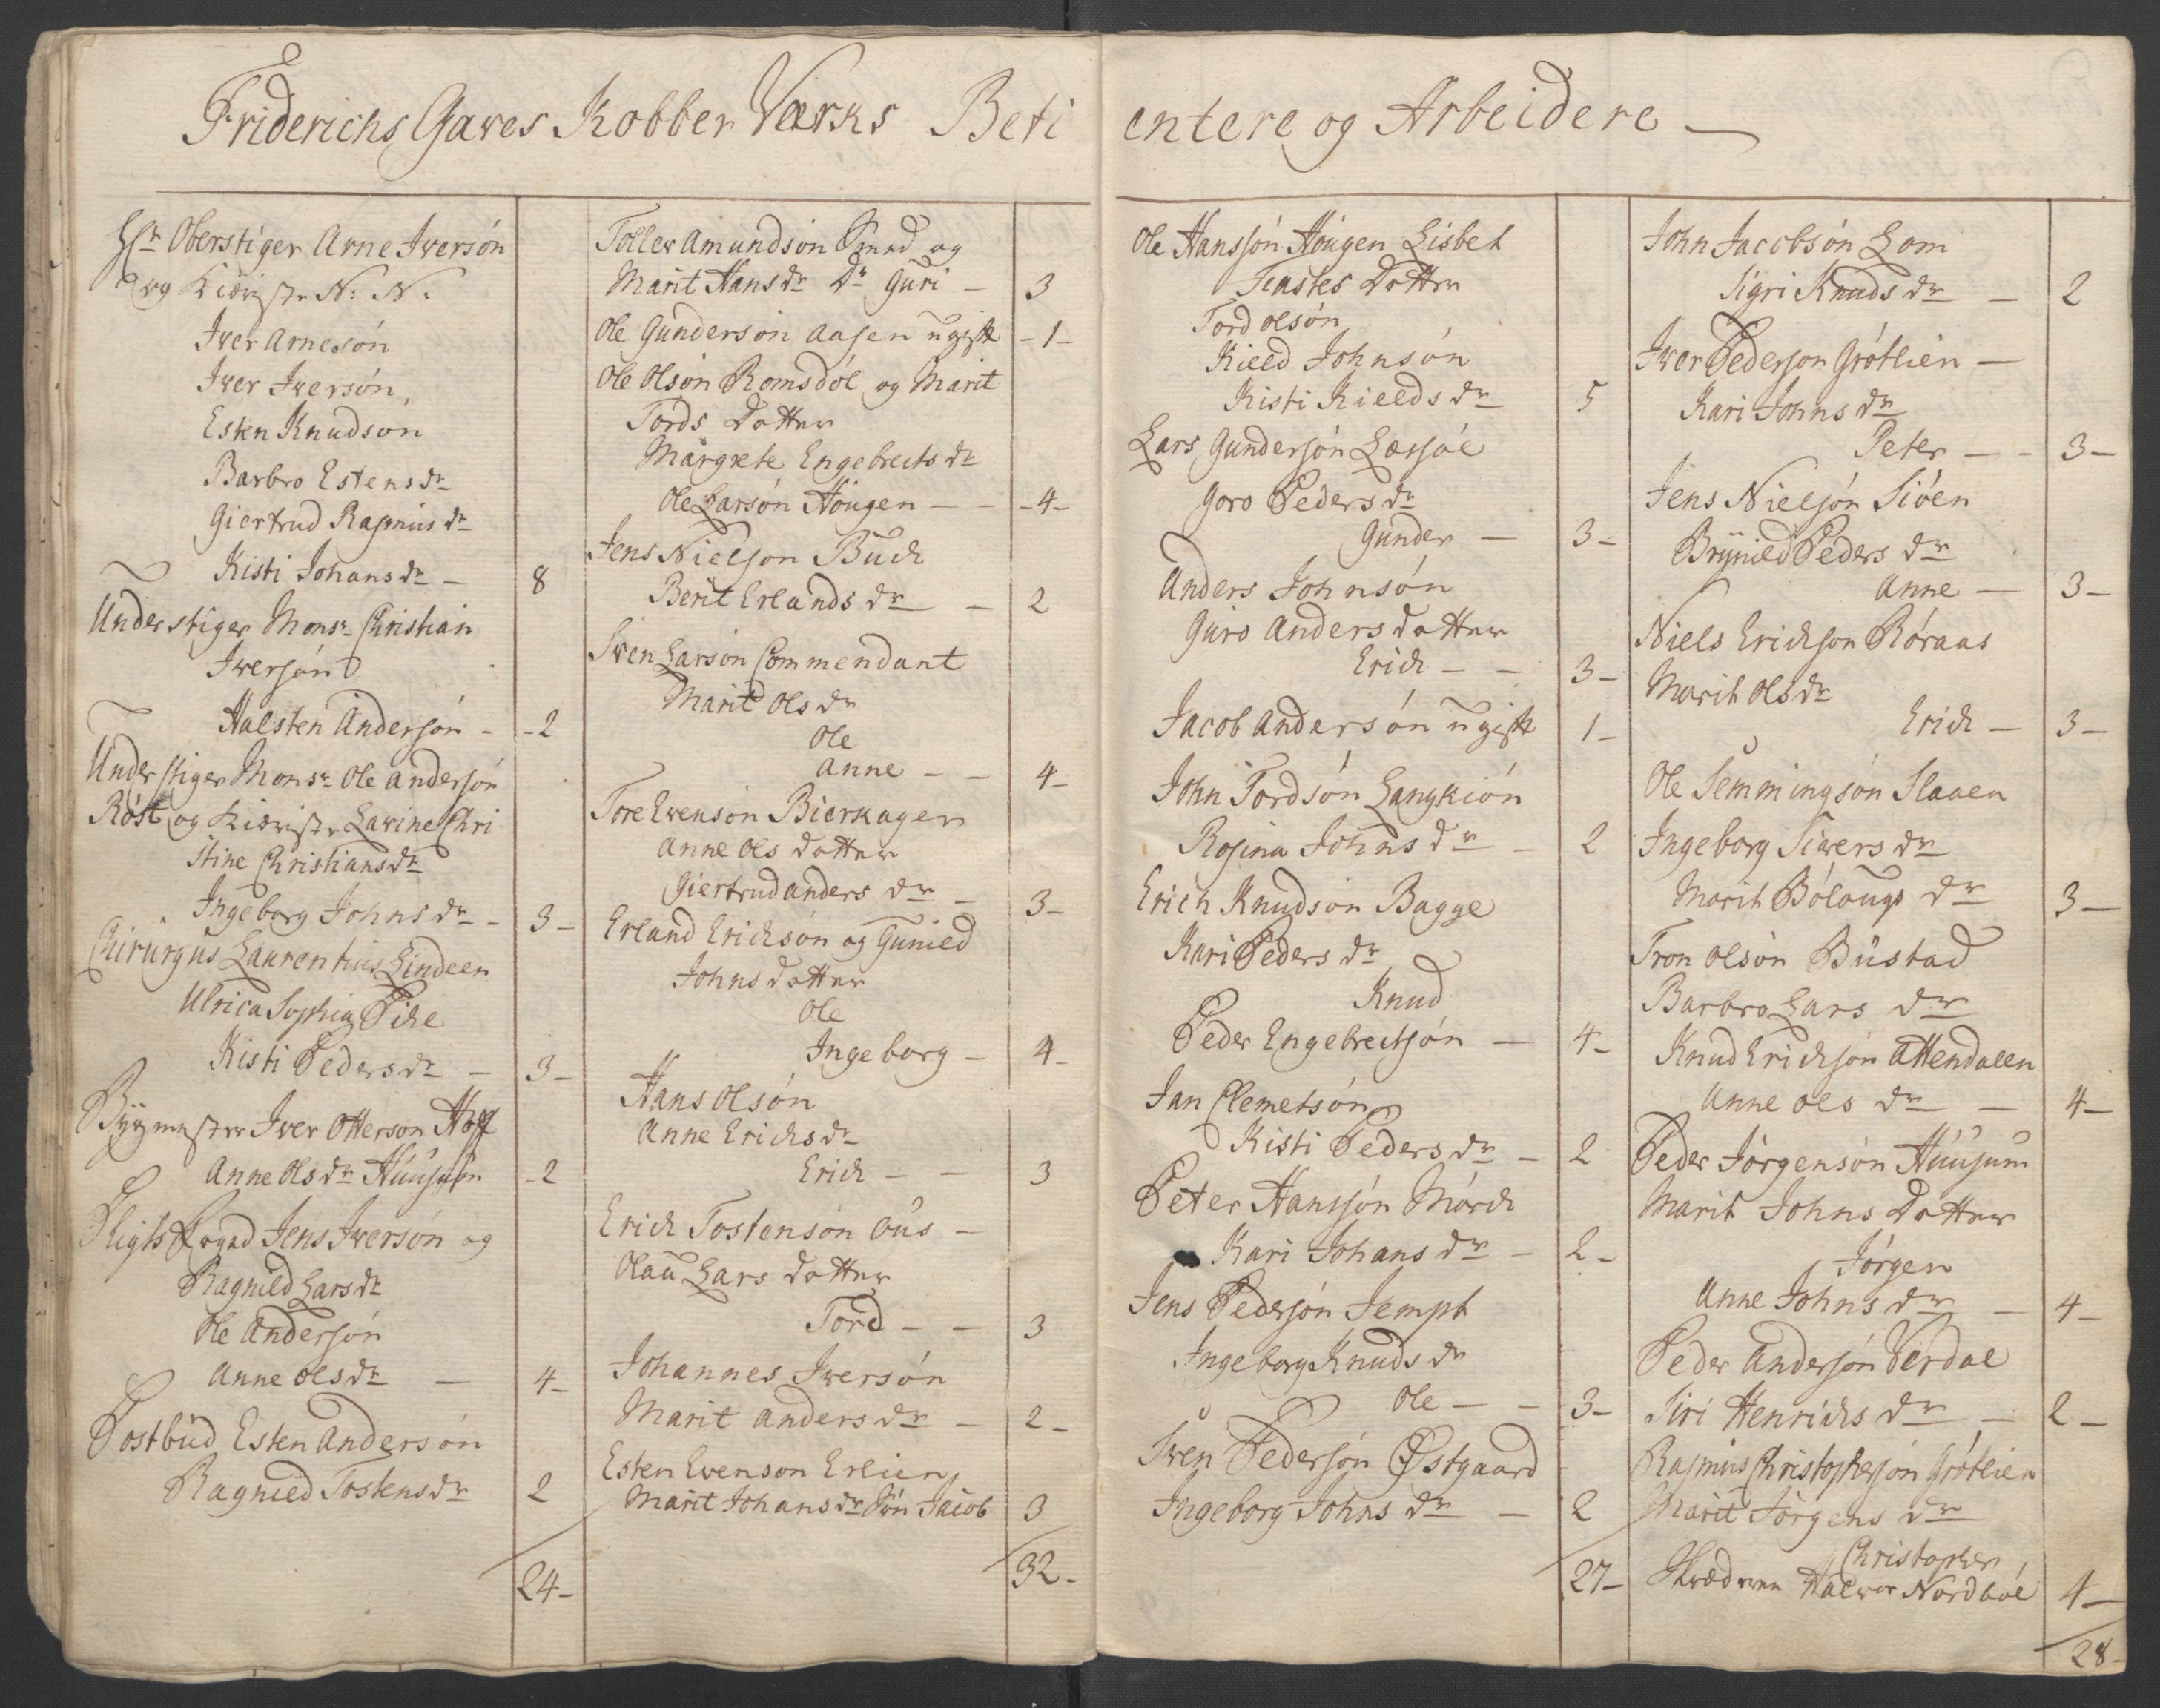 Friderichs Gaves Kobber Værks Beti entere og Arbeidere
Hr Oberstiger Arne Iversón
og N: N:
Iver Arnesón
Iver Iversón,
Esten Knudsón
Barbro Estens dr
Giertrud Rasmus dr
Kisti Johans dr - 8
Understiger Monsr Christian
Iversón
Halsten Andersón - -2
Under stiger Monsr Ole Andersón
Röst og Lavine Chri
stine Christians dr
Ingeborg Johns dr - 3-
Chirurgus Laurentius Lindeen
Ulrica Sophia Pihl
Kisti Peders dr - 3-
Iver Otterson Hoff
Anne Ols dr Huusum -2
Jens Iversón og
Ragnild Lars dr
Ole Andersón
Anne Ols dr - 4-
Postbud Esten Andersón
Ragnild Tostens dr 2
24-
Toller Amundson Smed og
Marit Hans dr Dr Guri - 3
Ole Gunderson Aasen ugift -1-
Ole Olson Romsdól og Marit
Tords Datter
Margrete Engebrects dr
Ole Larsón Hougen - - -4-
Jens Nielson Buch
Berit Erlands dr - 2
Sven Larson Commendant
Marit Ols dr
Ole
Anne - - 4-
Tore Evenson Bierkager
Anne Ols datter
Giertrud Anders dr - 3-
Erland Erichsón og Gunild
Johns datter
Ole
Ingeborg - 4-
Hans Olsón
Anne Erichs dr
Erich - - 3
Erich Tostenson Ous -
Olau Lars datter
Tord - - 3
Johannes Iversón
Marit Anders dr - 2-
Esten Evenson Erlien
Marit Johans dr Sön Jacob 3
32-
Ole Hanssón Hougen Lisbet
Feastes Datter
Tord Olsón
Kield Johnsón
Kisti Kields dr 5
Lars Gundersón Læssöe
Goro Peders dr
Gunder - 3-
Anders Johnsón
Guro Anders datter
Erich - - 3-
Jacob Andersón ugift 1-
John Tordsón Langkión
Rosina Johns dr - 2
Erich Knudson Bagge
Kari Peders dr
Knud
Peder Engebrectsón - 4-
Jan Clemetsón
Kisti Peders dr - 2
Peter Hanssón Mórch
Kari Johans dr - 2-
Jens Pedersón Jempt
Ingeborg Knuds dr
Ole - - 3-
Sven Pedersón Østgaard
Ingeborg Johns dr - 2
27-
John Jacobsón Lom
Sigri Knuds dr - 2
Iver Pederson Grótlien -
Kari Johns dr
Peter - - 3-
Jens Nielsón Sióen
Brynild Peders dr
Anne - 3-
Niels Erichson Róraas
Marit Ols dr
Erich - 3-
Ole Semmingsón Slaaen
Ingeborg Sivers dr
Marit Bólougs dr 3-
Tron Olsón Bustad
Barbro Lars dr
Knud Erichsón Attendalen
Anne Ols dr - 4-
Peder Jörgensón Huusum
Marit Johns Datter
Jórgen
Anne Johns dr - 4-
Peder Andersón Verdal
Siri Henrichs dr - 2-
Rasmus Christophersón Grótlien
Marit Jörgens dr
Christopher
Halvor Nordböl 4-
28-